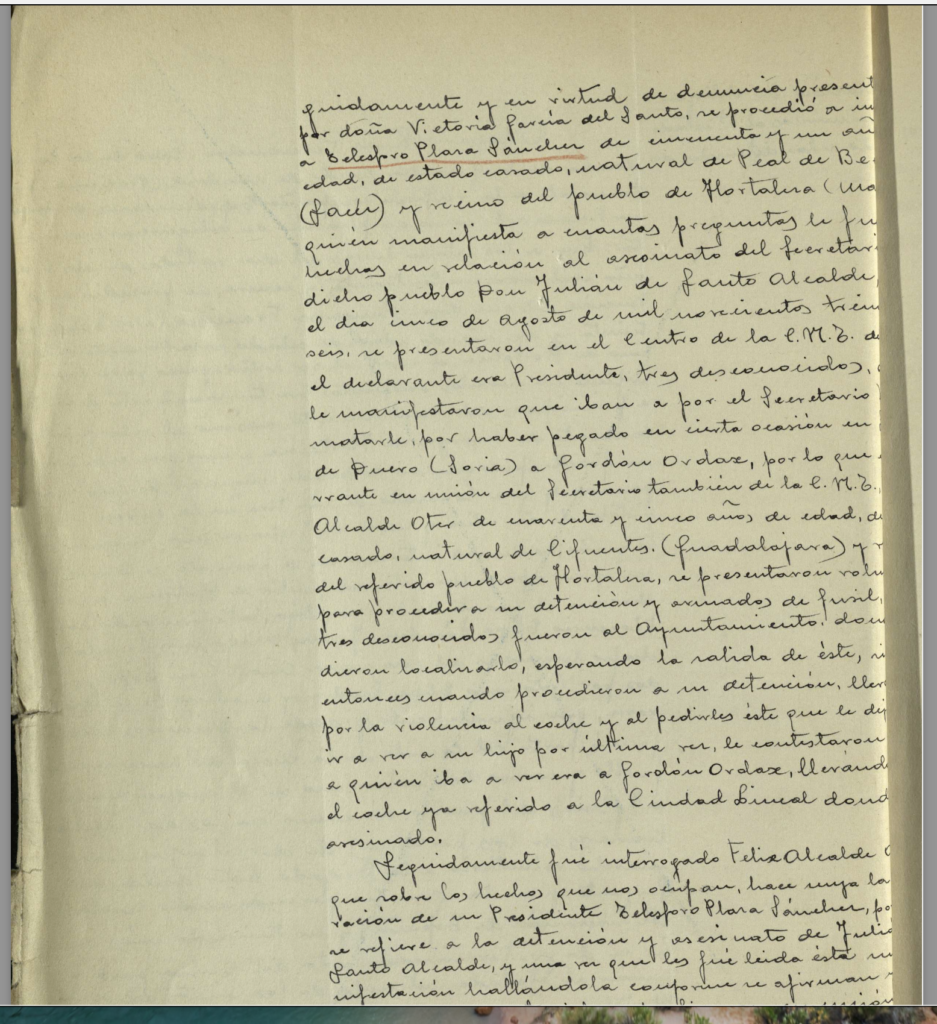 guidamente y en virtud de denuncia present
por doña Victoria García del Santo, se procedió a in
a Telesforo Plaza Sáncher de cincuenta y un añ
edad, de estado casado, natural de Peal de Be
(Jaén) y vecino del pueblo de Hortaleza (Ma
quién manifiesta a cuantas preguntas le fu
hechas en relación al asesinato del Secretar
dicho pueblo Don Julián de Santo Alcalde,
el dia cinco de Agosto de mil novecientos trein
seis, se presentaron en el Centro de la C.N.T. de
el declarante era Presidente, tres desconocidos,
le manifestaron que iban a por el Secretario
matarle, por haber pegado en cierta ocasión en
de Duero (Soria) a Gordón Ordax, por lo que
rrante en unión del Secretario también de la C.N.T.,
Alcalde Oter de cuarenta y cinco años de edad, de
casado, natural de Cifuentes. (Guadalajara) y v
del referido pueblo de Hortaleza, se presentaron volu
para proceder a su detención y armados de fusil,
tres desconocidos fueron al Ayuntamiento, don
dieron localizarlo, esperando la salida de éste, si
entonces cuando procedieron a su detención, llev
por la violencia al coche y al pedirles éste que le dej
ir a ver a su hijo por última vez, le contestaron
a quién iba a ver era a Gordón Ordax, lleránd
el coche ya referido a la Ciudad Lineal dond
asesinado.
Seguidamente fué interrogado Felix Alcalde O
que sobre los hechos que nos ocupan, hace suya la
ración de su Presidente Telesforo Plaza Sáncher, po
se refiere a la detención y asesinato de Juliá
Santo Alcalde, y una vez que les fué leida ésta su
nifestación hallándola conforme se afirman